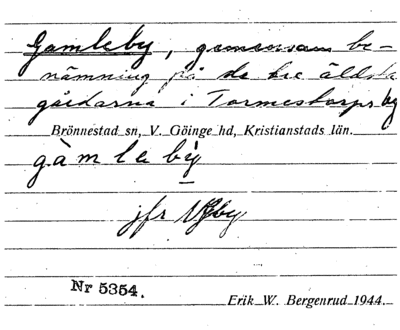 Gamleby, gemensam be-
nämning på de tre äldsta
gårdarna i Tormestorps by
Brönnestad sn, V. Göinge hd, Kristianstads län.
gàmlebý
jfr Nyby
Nr 5354.
Erik W. Bergenrud 1944.